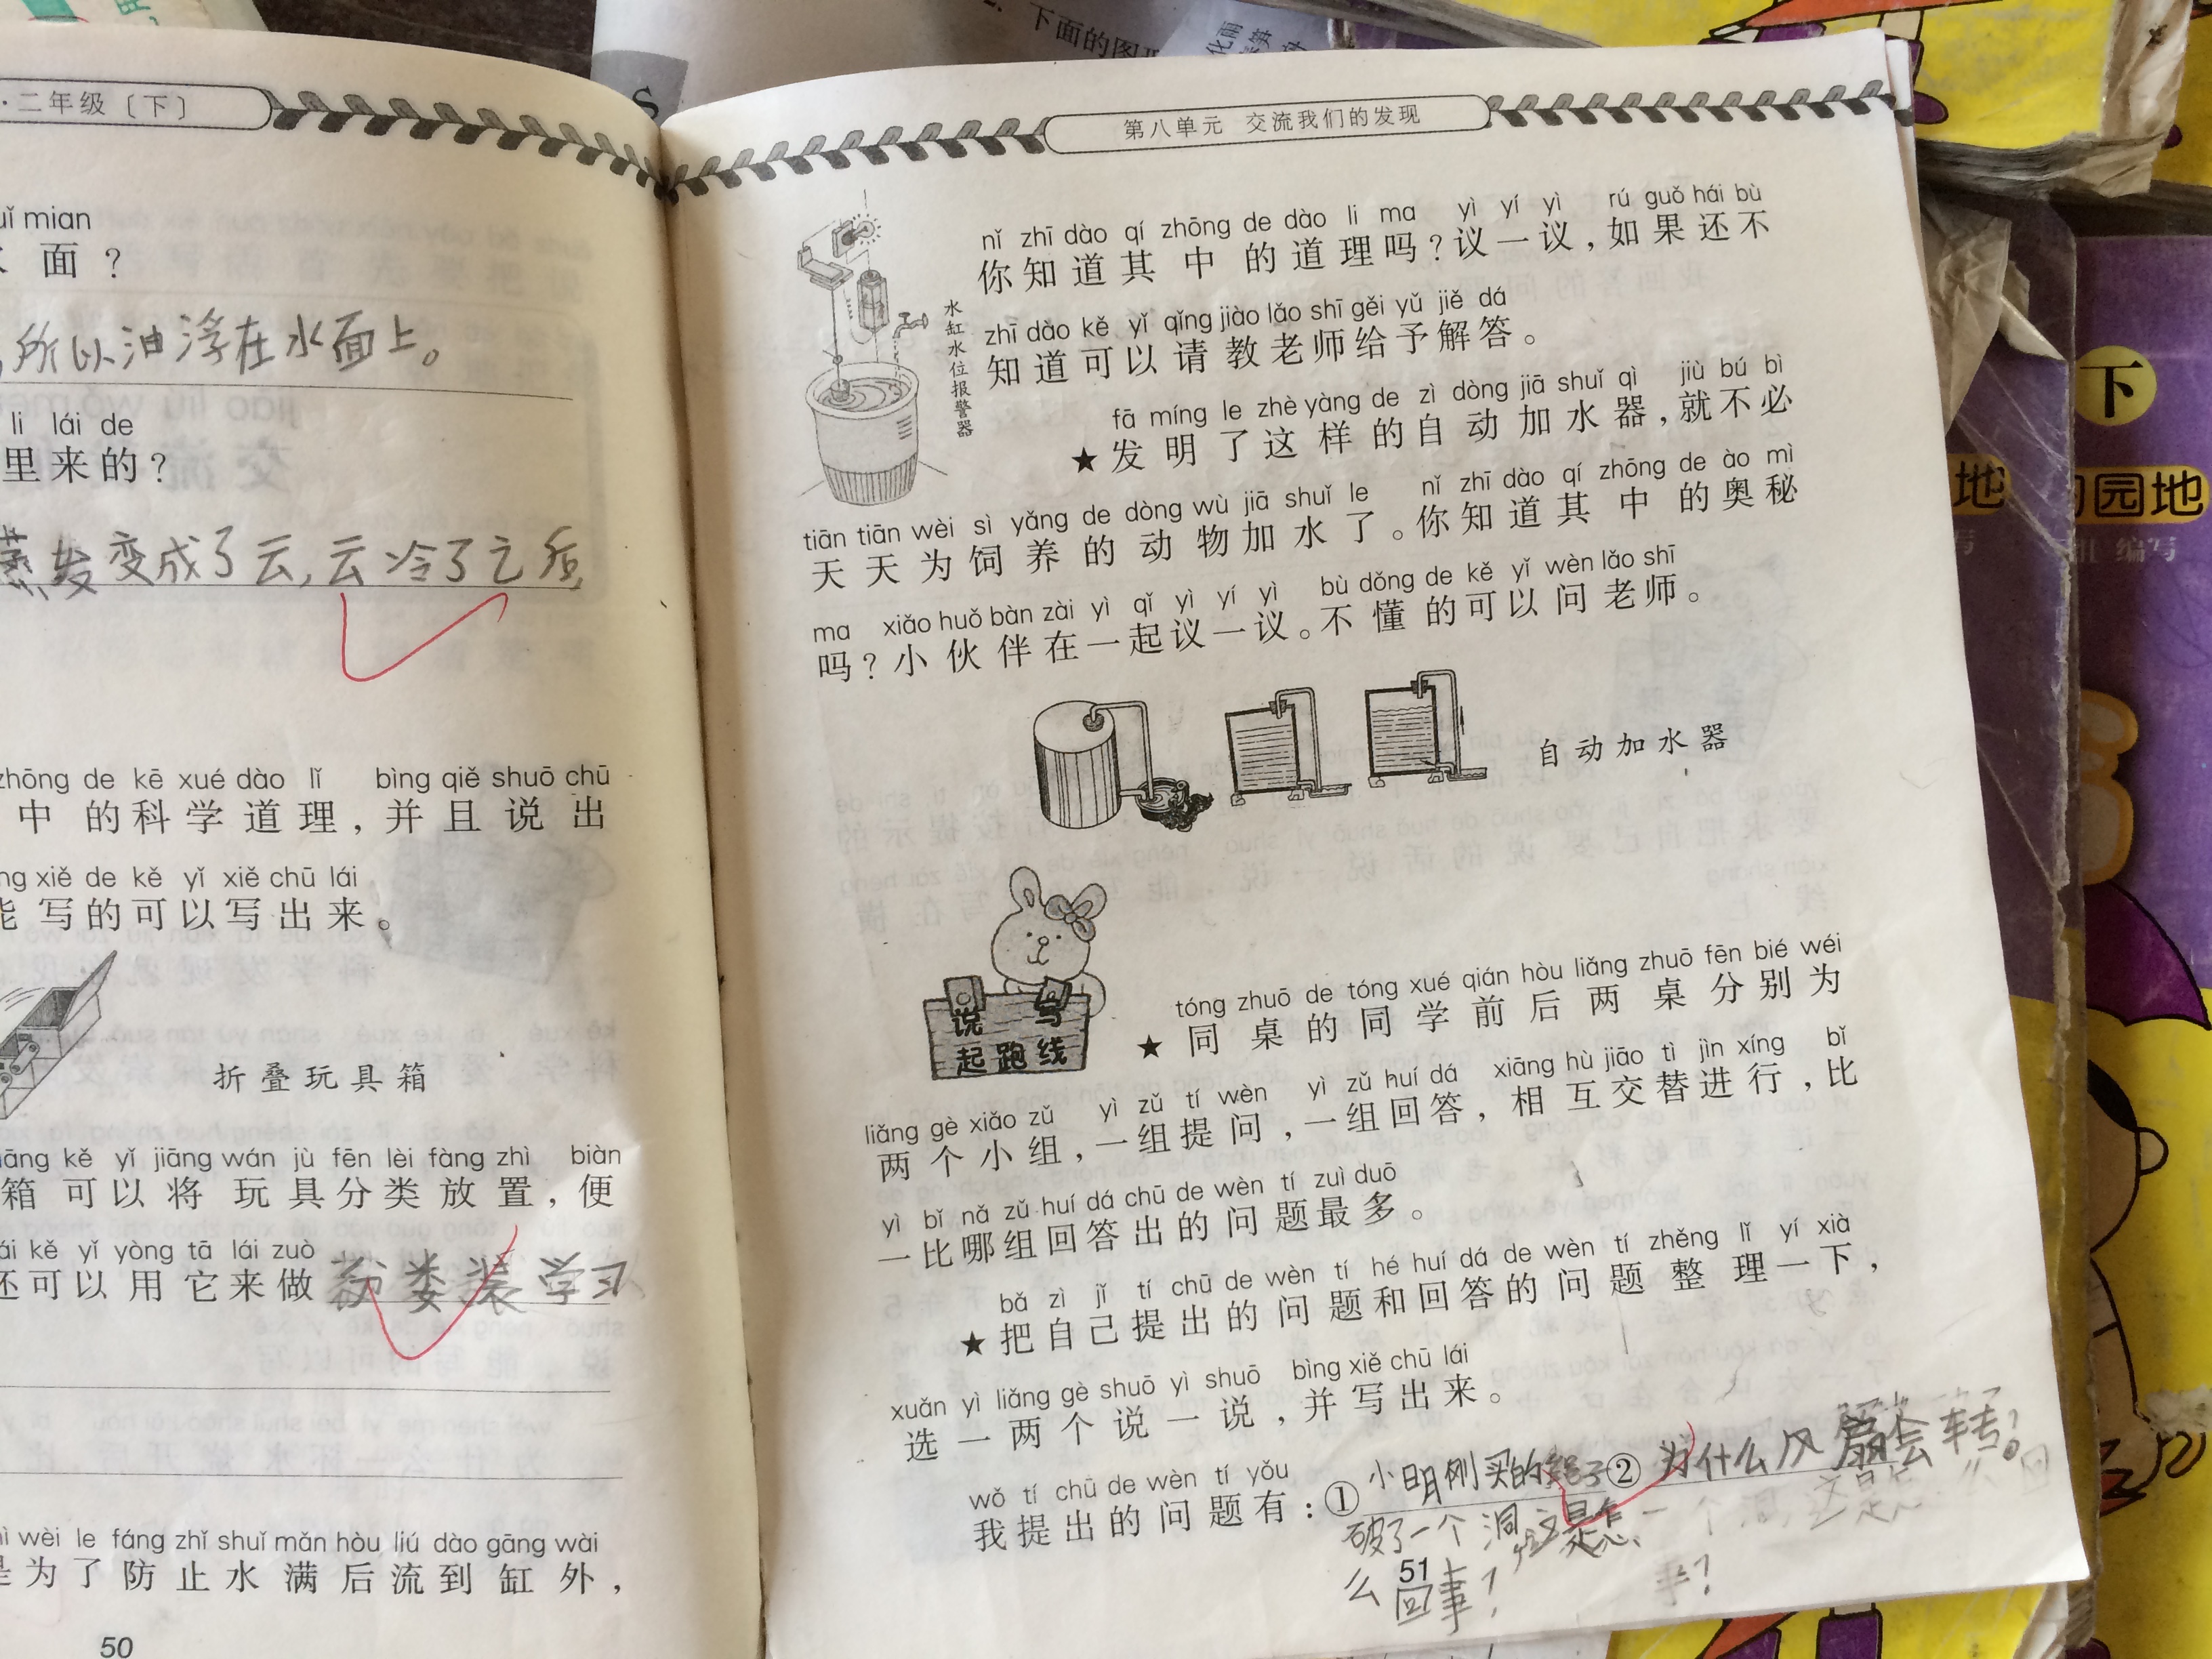 ·二年级〔下〕
uǐ mian
面？
所以油浮在水面上。
li lái de
里来的？
蒸发变成了云，云冷了之后
zhōng de kē xué dào lǐ bìng qiě shuō chū
中的科学道理，并且说出
ng xiě de kě yǐ xiě chū lái
能写的可以写出来。
折叠玩具箱
iāng kě yǐ jiāng wán jù fēn lèi fàng zhì biàn
箱可以将玩具分类放置，便
ái kě yǐ yòng tā lái zuò
还可以用它来做 学习
ì wèi le fáng zhǐ shuǐ mǎn hòu liú dào gāng wài
是为了防止水满后流到缸外，
50
第八单元 交流我们的发现
水缸水位报警器
nǐ zhī dào qí zhōng de dào li ma yì yí yì rú guǒ hái bù
你知道其中的道理吗？议一议，如果还不
zhī dào kě yǐ qǐng jiào lǎo shī gěi yǔ jiě dá
知道可以请教老师给予解答。
fā míng le zhè yàng de zì dòng jiā shuǐ qì jiù bú bì
★发明了这样的自动加水器，就不必
tiān tiān wèi sì yǎng de dòng wù jiā shuǐ le nǐ zhī dào qí zhōng de ào mì
天天为饲养的动物加水了。你知道其中的奥秘
ma xiǎo huǒ bàn zài yì qǐ yì yí yì bù dǒng de kě yǐ wèn lǎo shī
吗？小伙伴在一起议一议。不懂的可以问老师。
自动加水器
说 写
起跑线
tóng zhuō de tóng xué qián hòu liǎng zhuō fēn bié wéi
★同桌的同学前后两桌分别为
liǎng gè xiǎo zǔ yì zǔ tí wèn yì zǔ huí dá xiāng hù jiāo tì jìn xíng bǐ
两个小组，一组提问，一组回答，相互交替进行，比
yì bǐ nǎ zǔ huí dá chū de wèn tí zuì duō
一比哪组回答出的问题最多。
bǎ zì jǐ tí chū de wèn tí hé huí dá de wèn tí zhěng lǐ yí xià
★把自己提出的问题和回答的问题整理一下，
xuǎn yì liǎng gè shuō yì shuō bìng xiě chū lái
选一两个说一说，并写出来。
wǒ tí chū de wèn tí yǒu
我提出的问题有：①小明刚买的 ②为什么风扇会转？
破了一个洞，这是怎
么回事？
51
下面的图
S
下
地
的园地
写
组 编写